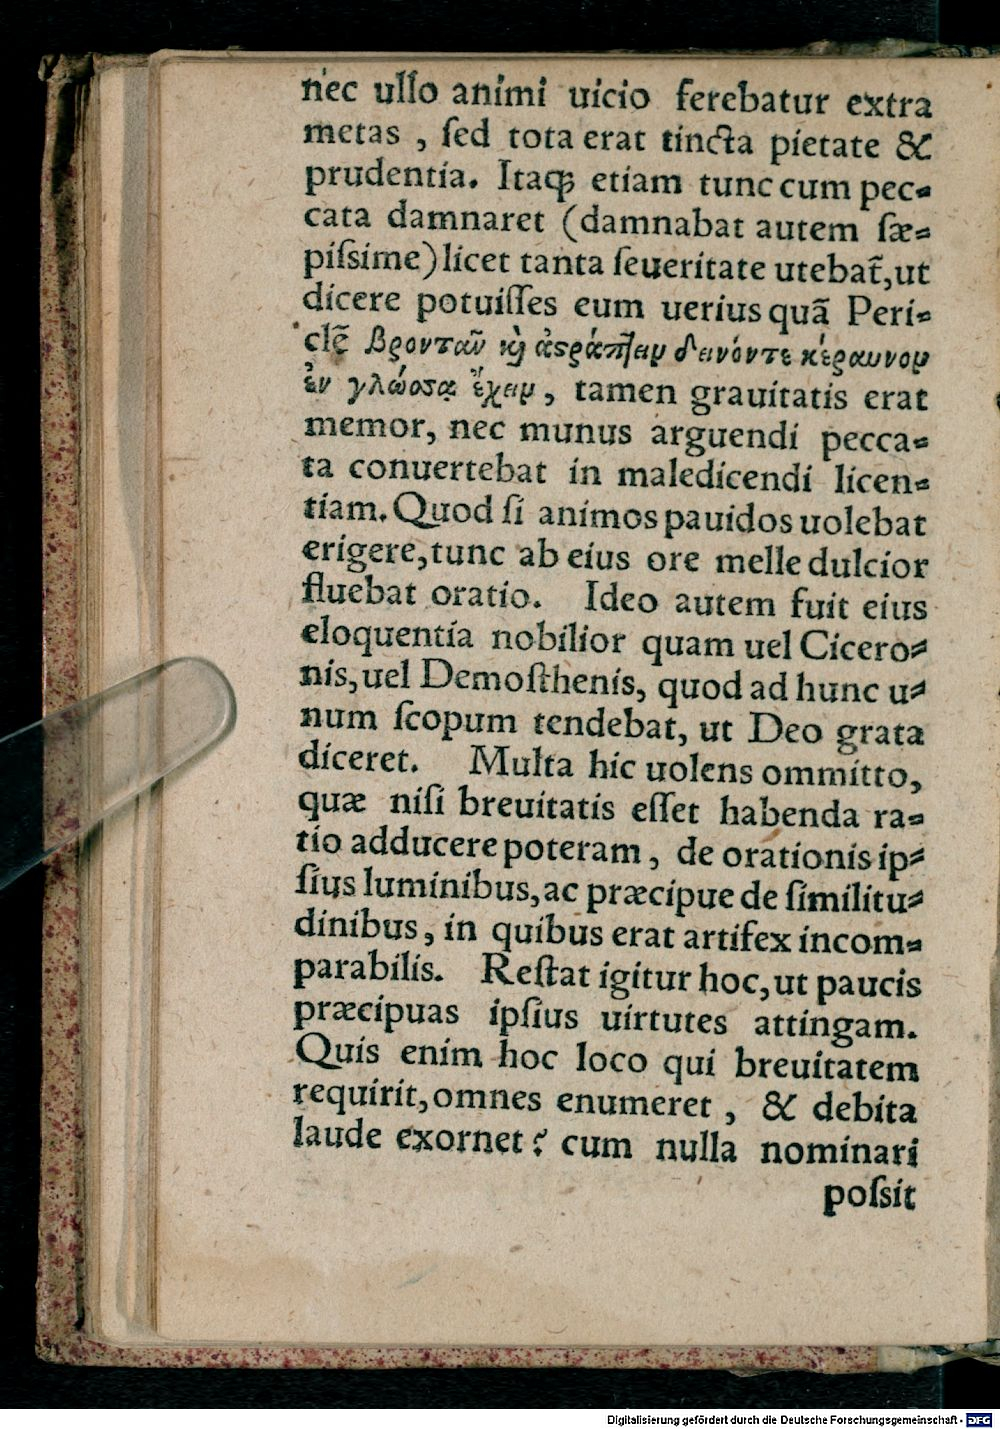 nec ullo animi uicio ferebatur extra
metas , ſed tota erat tincta pietate &
prudentia. Itaqꝫ etiam tunc cum pec⸗
cata damnaret (damnabat autem ſæ⸗
piſsime) licet tanta ſeueritate utebat᷑, ut
dicere potuiſſes eum uerius quã Peri⸗
clẽ βροντᾶν καὶ ἀςράπ͂ειν δεινόντε κέραυνον
ἐν γλώσσᾳ ἔχειν, tamen grauitatis erat
memor, nec munus arguendi pecca⸗
ta conuertebat in maledicendi licen⸗
tiam. Quod ſi animos pauidos uolebat
erigere, tunc ab eius ore melle dulcior
fluebat oratio. Ideo autem fuit eius
eloquentia nobilior quam uel Cicero⸗
nis, uel Demoſthenis, quod ad hunc u⸗
num ſcopum tendebat, ut Deo grata
diceret. Multa hic uolens ommitto,
quæ niſi breuitatis eſſet habenda ra⸗
tio adducere poteram , de orationis ip⸗
ſius luminibus, ac præcipue de ſimilitu⸗
dinibus , in quibus erat artifex incom⸗
parabilis. Reſtat igitur hoc, ut paucis
præcipuas ipſius uirtutes attingam.
Quis enim hoc loco qui breuitatem
requirit, omnes enumeret , & debita
laude exornet? cum nulla nominari
poſsit
Digitalisierung gefördert durch die Deutsche Forschungsgemeinschaft - DFG